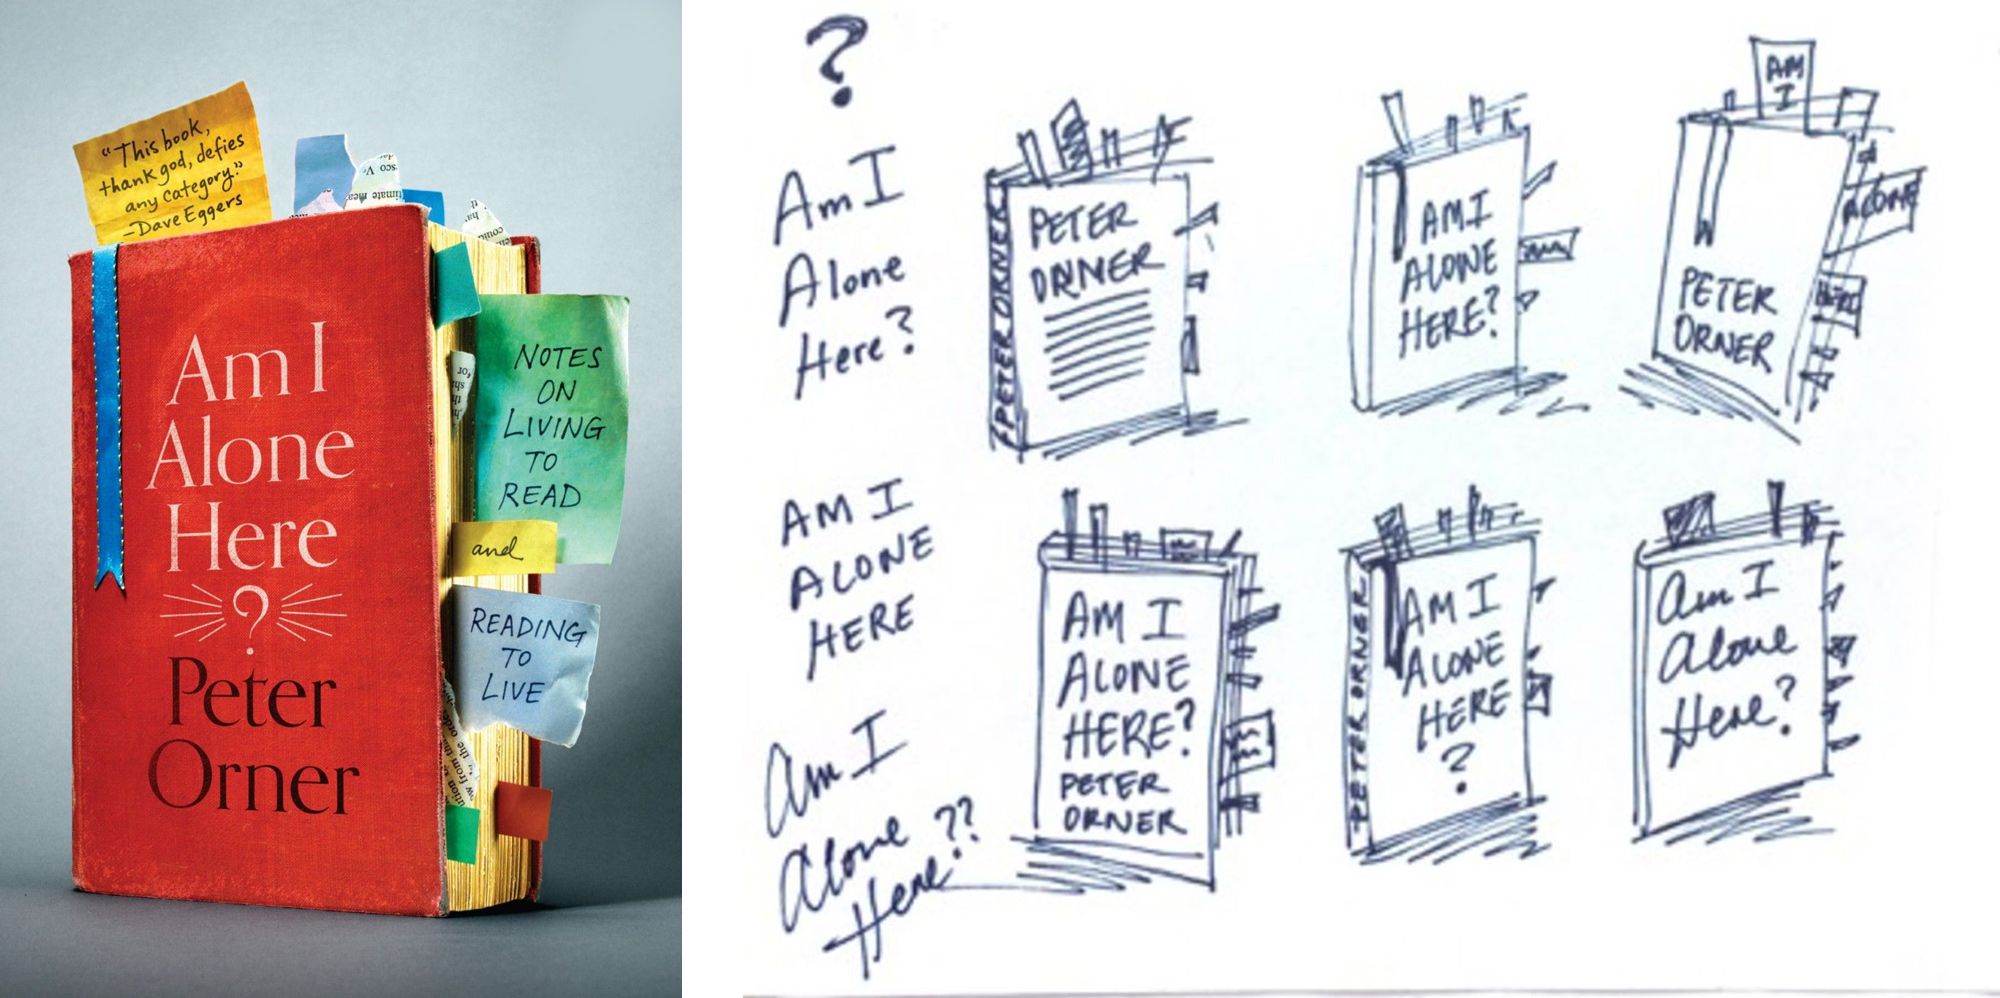 "This book,
thank god, defies
any category."
—Dave Eggers
Am I
Alone
Here
?
Peter
Orner
NOTES
ON
LIVING
TO
READ
and
READING
TO
LIVE
?
Am I
Alone
Here?
AM I
ALONE
HERE
Am I
Alone ??
Here
PETER ORNER
PETER
ORNER
AM I
ALONE
HERE?
AM
I
ALONE
PETER
ORNER
AM I
ALONE
HERE?
PETER
ORNER
PETER ORNER
AM I
ALONE
HERE
?
Am I
Alone
Here?